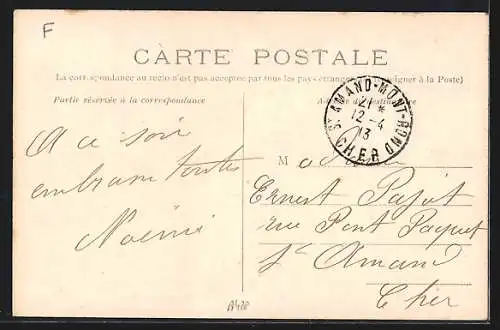 F
CARTE POSTALE
La correspondance au recto n'est pas acceptée par tous les pays étrangers (Se renseigner à la Poste)
Partie réservée à la correspondance
Adresse du destinataire
ST AMAND-MONT-ROND
21 *
12-4
13
CHER
A ce soir
embrasse toutes
Noémi
Madame
Ernest Pajot
rue Pont Paquet
St Amand
Cher
A420